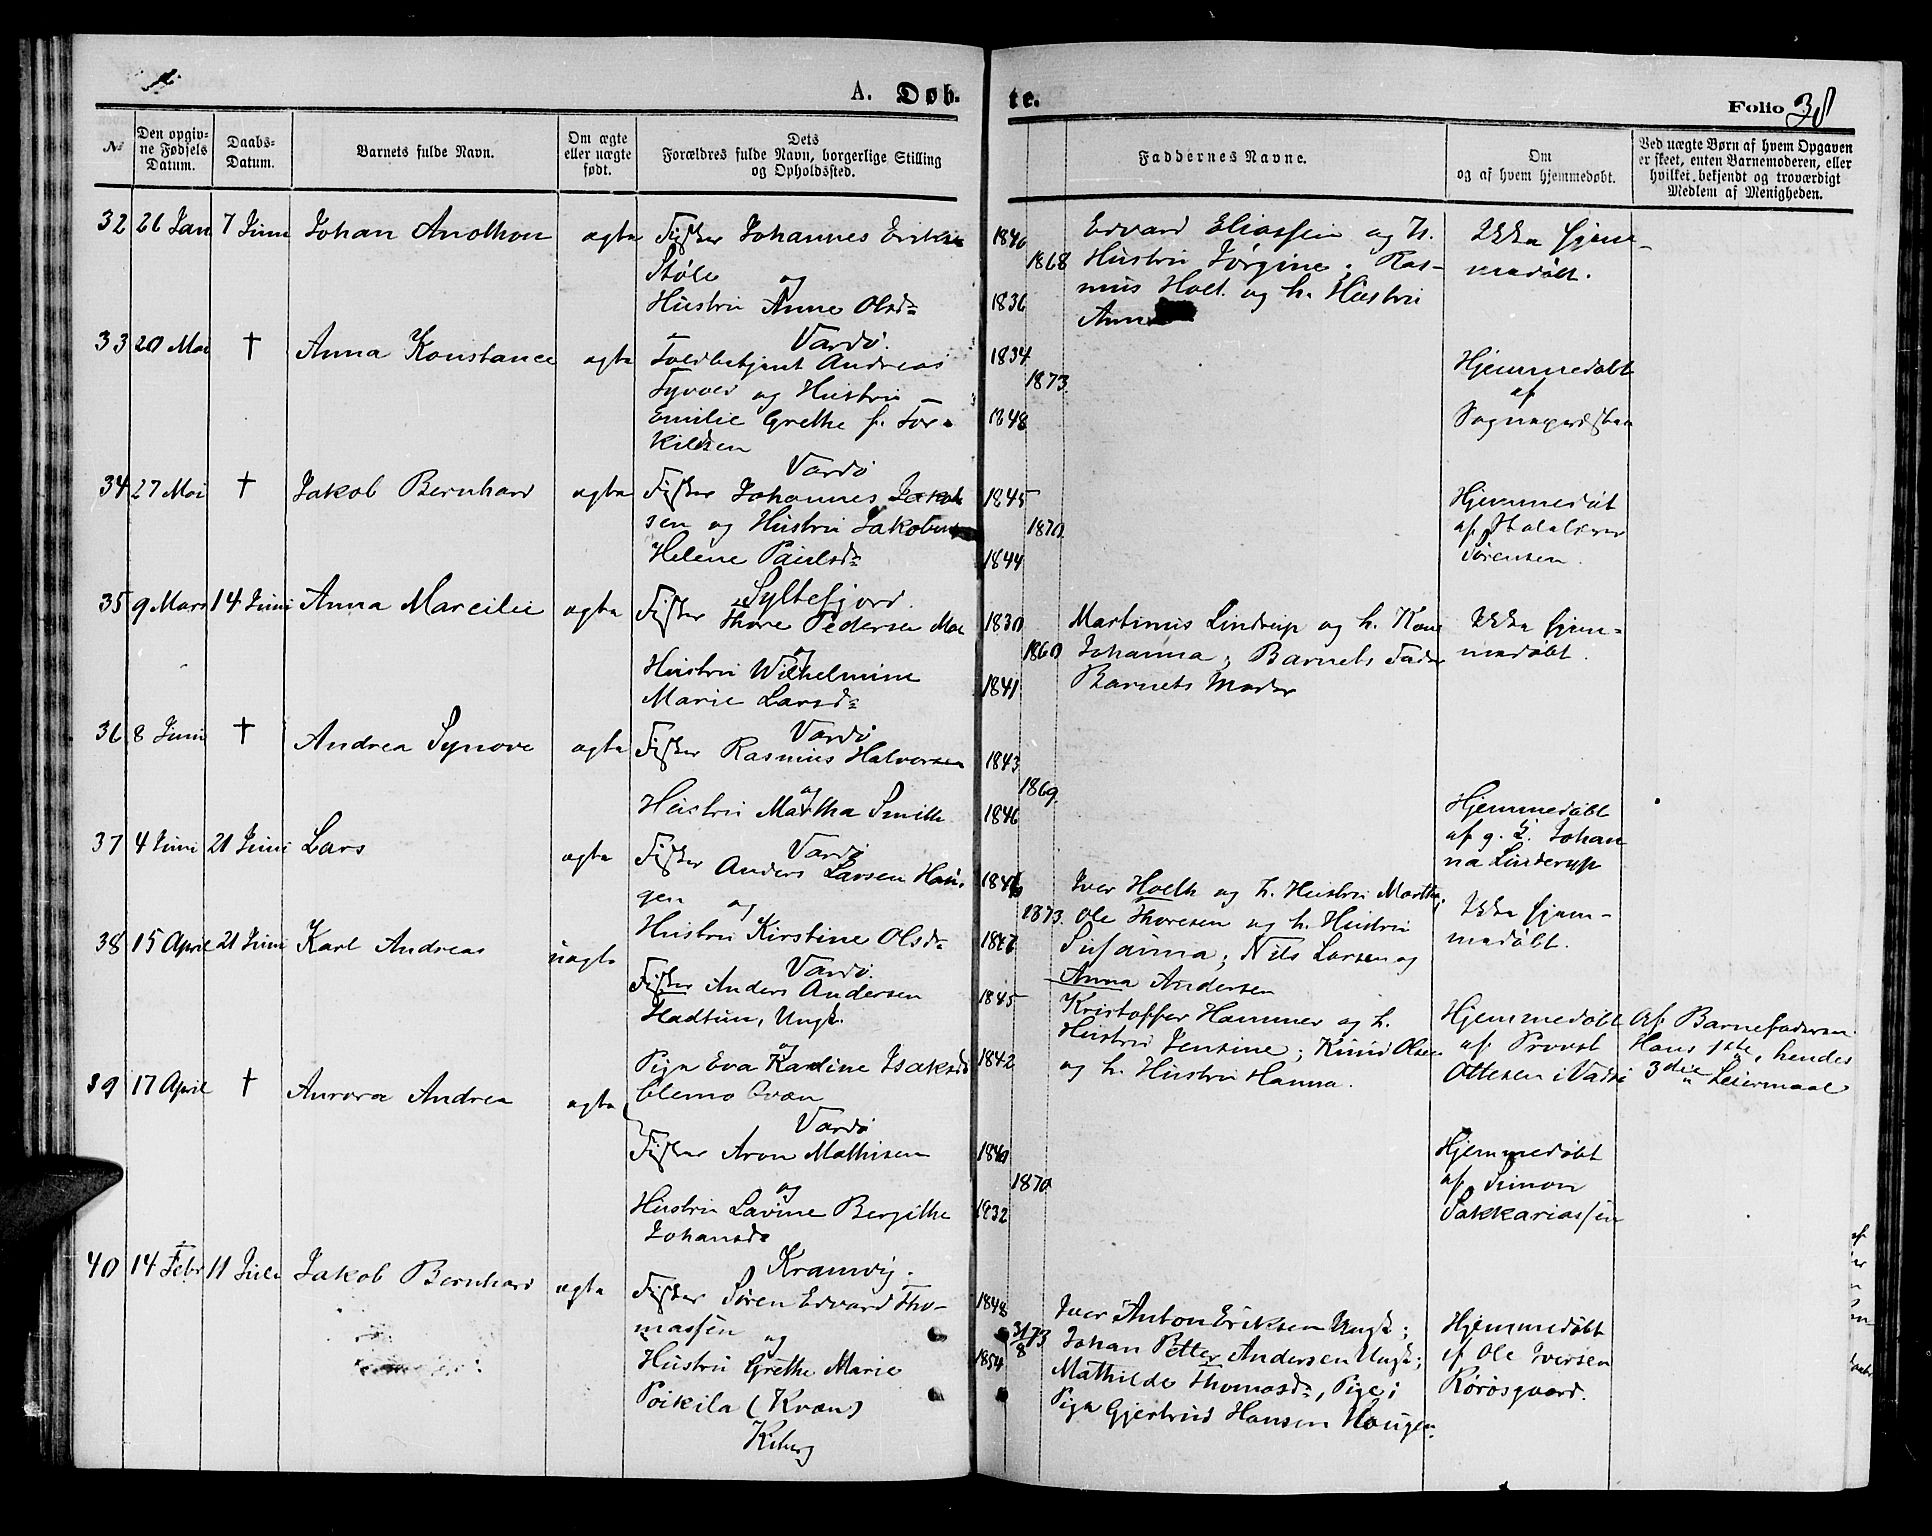 A. Døb-
te.
Folio 38
№
Den opgiv-
ne Fødsels
Datum.
Daabs-
Datum.
Barnets fulde Navn.
Om ægte
eller uægte
født.
Dets
Forældres fulde Navn, borgerlige Stilling
og Opholdssted.
Faddernes Navne.
Om
og af hvem hjemmedøbt.
Ved uægte Børn af hvem Opgaven
er skeet, enten Barnemoderen, eller
hvilket bekjendt og troværdigt
Medlem af Menigheden.
32 26 Jan 7 Juni Johan Anothon ægte
Fisker Johannes Eriks
Støle og
Hustru Anne Olsd.
Vardø.
1840
1868
1836
Edvard Eliassen og h.
Hustru Jørgine; Ras-
mus Holt og h. Hustru
Anne
Ikke hjem-
medøbt.
33 20 Mai † Anna Konstance ægte
Toldbetjent Andreas
Tyvold og Hustru
Emilie Grethe f. Tor-
kildsen
Vardø
1834
1873.
1848
Hjemmedøbt
af
Sognepresten
34 27 Mai † Jakob Bernhard ægte
Fisker Johannes Jakob
sen og Hustru Jakobine
Helene Paulsd.
Syltefjord.
1845
1870.
1844
Hjemmedøbt
af Skolelærer
Sørensen.
35 9 Mars 14 Juni Anna Marcilie ægte
Fisker Thore Pedersen Moe
og
Hustru Wilhelmine
Marie Larsd.
Vardø
1830
1860
1841
Martinus Lindrup og h. Kone
Johanna; Barnets Fader
Barnets Moder
Ikke hjem-
medøbt.
36 8 Juni † Andrea Synove ægte
Fisker Rasmus Halvorsen
og
Hustru Martha Smith
Vardø
1843
1869.
1846
Hjemmedøbt
af g. K. Johan
na Linderup
37 4 Juni 21 Juni Lars ægte
Fisker Anders Larsen Hau-
gen og
Hustru Kirstine Olsd.
Vardø.
1846
1873.
1847
Iver Holth og h. Hustru Martha;
Ole Thoresen og h. Hustru
Susanna; Nils Larsen og
Anna Andersen
Ikke hjem-
medøbt.
38 15 April 21 Juni Karl Andreas uægte
Fisker Anders Andersen
Hadtun, Ungk.
og
Pige Eva Kardine Isaksd
Clemo Qvæn
Vardø
1845
1842
Kristoffer Hammer og h.
Hustru Jensine; Knud Olsen
og h. Hustru Hanna.
Hjemmedøbt
af Provst
Ottesen i Vadsø
Af Barnefaderen.
Hans 1ste, hendes
3die Leiermaal
39 17 April † Aurora Andrea ægte
Fisker Aron Mathisen
og
Hustru Lavine Bergithe
Johansd.
Kramvig.
1840
1870
1832
Hjemmedøbt
af Simon
Sakkariassen
40 14 Febr 11 Juli Jakob Bernhard ægte
Fisker Søren Edvard Tho-
massen og
Hustru Grethe Marie
Poikila (Kvæn)
Kiberg
1848
31/8 73
1854
Iver Anton Eriksen Ungk;
Johan Petter Andersen Ungk;
Mathilde Thomasd., Pige;
Pige Gjertrud Hansen Haugen.
Hjemmedøbt
af Ole Iversen
Rørosgaard.